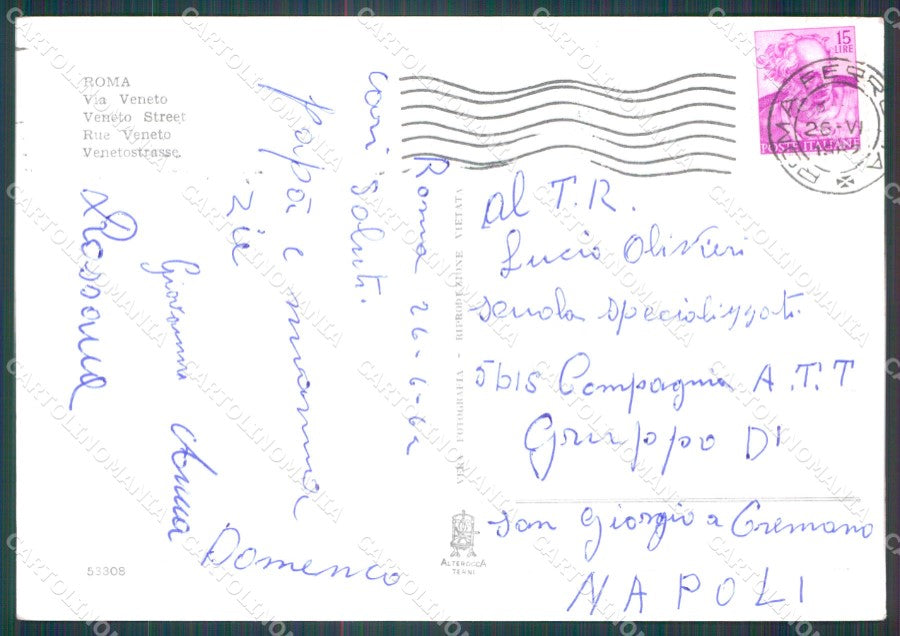 ROMA
Via Veneto
Veneto Street
Rue Veneto
Venetostrasse.
15
LIRE
POSTE ITALIANE
ROMA FERROVIA
26-VI
Roma 26-6-62
cari saluti.
papà e mamma
zie
Giovanni Anna
Rossana
Domenico
VERA FOTOGRAFIA - RIPRODUZIONE VIETATA
al T.R.
Lucio Olivieri
scuola specializzati
5bis Compagnia A.T.T
Gruppo DI
San Giorgio a Cremano
NAPOLI
53308
ALTEROCCA
TERNI
CARTOLINOMANIA